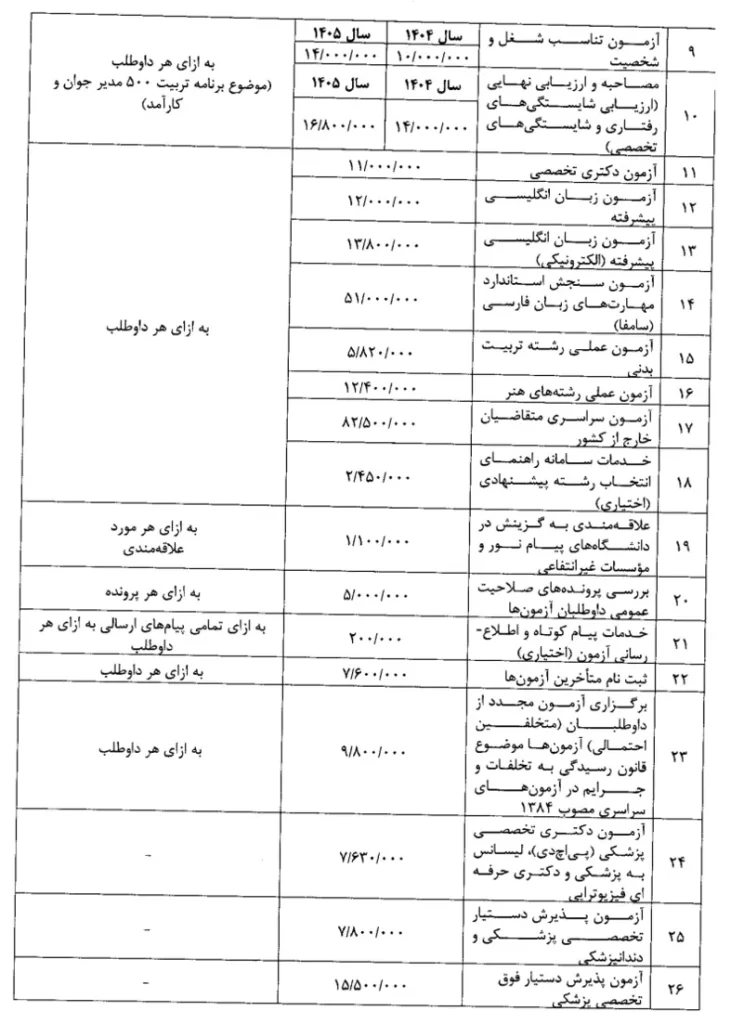 ۹
آزمون تناسب شغل و
شخصیت
سال ۱۴۰۴
سال ۱۴۰۵
۱۰/۰۰۰/۰۰۰
۱۴/۰۰۰/۰۰۰
به ازای هر داوطلب
(موضوع برنامه تربیت ۵۰۰ مدیر جوان و
کارآمد)
۱۰
مصاحبه و ارزیابی نهایی
(ارزیابی شایستگی‌های
رفتاری و شایستگی‌های
تخصصی)
سال ۱۴۰۴
سال ۱۴۰۵
۱۴/۰۰۰/۰۰۰
۱۶/۸۰۰/۰۰۰
۱۱
آزمون دکتری تخصصی
۱۱/۰۰۰/۰۰۰
به ازای هر داوطلب
۱۲
آزمون زبان انگلیسی
پیشرفته
۱۲/۰۰۰/۰۰۰
۱۳
آزمون زبان انگلیسی
پیشرفته (الکترونیکی)
۱۳/۸۰۰/۰۰۰
۱۴
آزمون سنجش استاندارد
مهارت‌های زبان فارسی
(سامفا)
۵۱/۰۰۰/۰۰۰
۱۵
آزمون عملی رشته تربیت
بدنی
۵/۸۲۰/۰۰۰
۱۶
آزمون عملی رشته‌های هنر
۱۲/۴۰۰/۰۰۰
۱۷
آزمون سراسری متقاضیان
خارج از کشور
۸۲/۵۰۰/۰۰۰
۱۸
خدمات سامانه راهنمای
انتخاب رشته پیشنهادی
(اختیاری)
۲/۴۵۰/۰۰۰
۱۹
علاقه‌مندی به گزینش در
دانشگاه‌های پیام نور و
مؤسسات غیرانتفاعی
۱/۱۰۰/۰۰۰
به ازای هر مورد
علاقه‌مندی
۲۰
بررسی پرونده‌های صلاحیت
عمومی داوطلبان آزمون‌ها
۵/۰۰۰/۰۰۰
به ازای هر پرونده
۲۱
خدمات پیام کوتاه و اطلاع-
رسانی آزمون (اختیاری)
۲۰۰/۰۰۰
به ازای تمامی پیام‌های ارسالی به ازای هر
داوطلب
۲۲
ثبت نام متأخرین آزمون‌ها
۷/۶۰۰/۰۰۰
به ازای هر داوطلب
۲۳
برگزاری آزمون مجدد از
داوطلبان (متخلفین
احتمالی) آزمون‌ها موضوع
قانون رسیدگی به تخلفات و
جرایم در آزمون‌های
سراسری مصوب ۱۳۸۴
۹/۸۰۰/۰۰۰
به ازای هر داوطلب
۲۴
آزمون دکتری تخصصی
پزشکی (پی‌اچ‌دی)، لیسانس
به پزشکی و دکتری حرفه
ای فیزیوتراپی
۷/۶۳۰/۰۰۰
-
۲۵
آزمون پذیرش دستیار
تخصصی پزشکی و
دندانپزشکی
۷/۸۰۰/۰۰۰
-
۲۶
آزمون پذیرش دستیار فوق
تخصصی پزشکی
۱۵/۵۰۰/۰۰۰
-